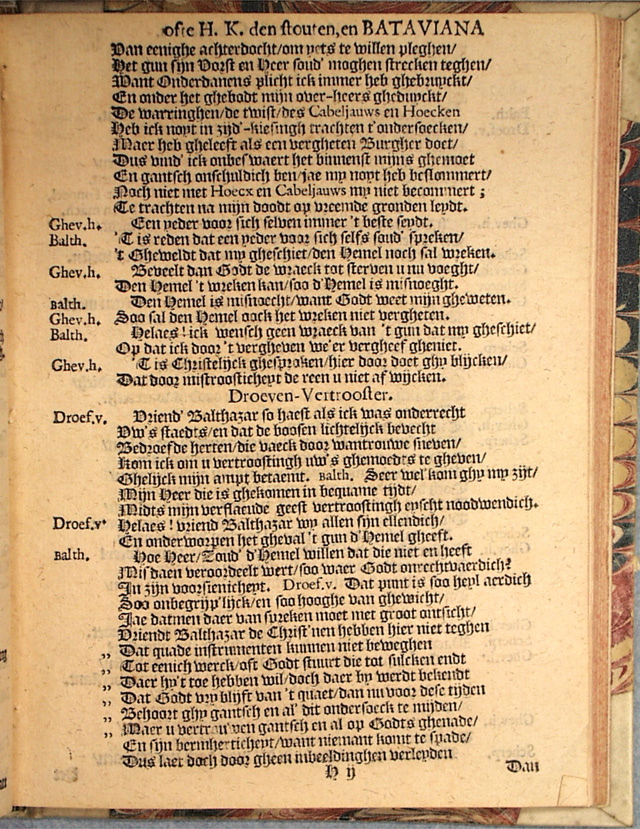 ofte H. K. den stouten, en BATAVIANA
Van eenighe achterdocht/om yets te willen pleghen/
Het gun sijn Vorst en Heer soud' moghen strecken teghen/
Want Onderdanens plicht ick immer heb ghebruyckt/
En onder het ghebodt mijn over-heers ghebuyckt/
De warringhen/de twist/des Cabeljauws en Hoecken
Heb ick noyt in zijd'-kiesingh trachten t'ondersoecken/
Maer heb gheleeft als een vergheten Burgher doet/
Dus vind' ick onbeswaert het binnenst mijns ghemoet
En gantsch onschuldich ben/jae my noyt heb beslommert/
Noch niet met Hoecx en Cabeljauws my niet becommert ;
Te trachten na mijn doodt op vreemde gronden leydt.
Ghev.h. Een yeder voor sich selven immer 't beste seydt.
Balth. 'T is reden dat een yeder voor sich selfs soud' spreken/
't Gheweldt dat my gheschiet/den Hemel noch sal wreken.
Ghev.h. Beveelt dan Godt de wraeck tot sterven u nu voeght/
Den Hemel 't wreken kan/soo d'Hemel is misnoeght.
Balth. Den Hemel is misnoecht/want Godt weet mijn gheweten.
Ghev.h. Soo sal den Hemel oock het wreken niet vergheten.
Balth. Helaes! ick wensch geen wraeck van 't gun dat my gheschiet/
Op dat ick door 't vergheven we'er vergheef gheniet.
Ghev.h. 'T is Christelijck ghesproken/hier door doet ghy blijcken/
Dat door mistroosticheyt de reen u niet af wijcken.
Droeven-Vertrooster.
Droef.v. Vriend' Balthazar so haest als ick was onderrecht
Uw's staedts/en dat de boosen lichtelijck bevecht
Bedroefde herten/die vaeck door wantrouwe sneven/
Kom ick om u vertroostingh uw's ghemoedts te gheven/
Ghelijck mijn ampt betaemt. Balth. Seer wel kom ghy my zijt/
Mijn Heer die is ghekomen in bequame tijdt/
Midts mijn verslaende geest vertroostingh eyscht noodwendich.
Droef.v. Helaes! vriend Balthazar wy allen sijn ellendich/
En onderworpen het gheval 't gun d'Hemel gheeft.
Balth. Hoe Heer/Zoud' d'Hemel willen dat die niet en heeft
Misdaen veroordeelt wert/soo waer Godt onrechtvaerdich?
In zijn voorsienicheyt. Droef.v. Dat punt is soo heyl aerdich
Soo onbegrijp'lijck/en soo hooghe van ghewicht/
Jae datmen daer van spreken moet met groot ontsicht/
Vriendt Balthazar de Christ'nen hebben hier niet teghen
,, Dat quade instrumenten kunnen niet beweghen
,, Tot eenich werck/oft Godt stuurt die tot sulcken endt
,, Daer hy't toe hebben wil/doch daer by werdt bekendt
,, Dat Godt vry blijft van 't quaet/dan nu voor dese tijden
,, Behoort ghy gantsch en al' dit ondersoeck te mijden/
,, Maer u vertrouwen gantsch en al op Godts ghenade/
En sijn bermherticheyt/want niemant komt te spade/
Dus laet doch door gheen inbeeldinghen verleyden
H ij Dan